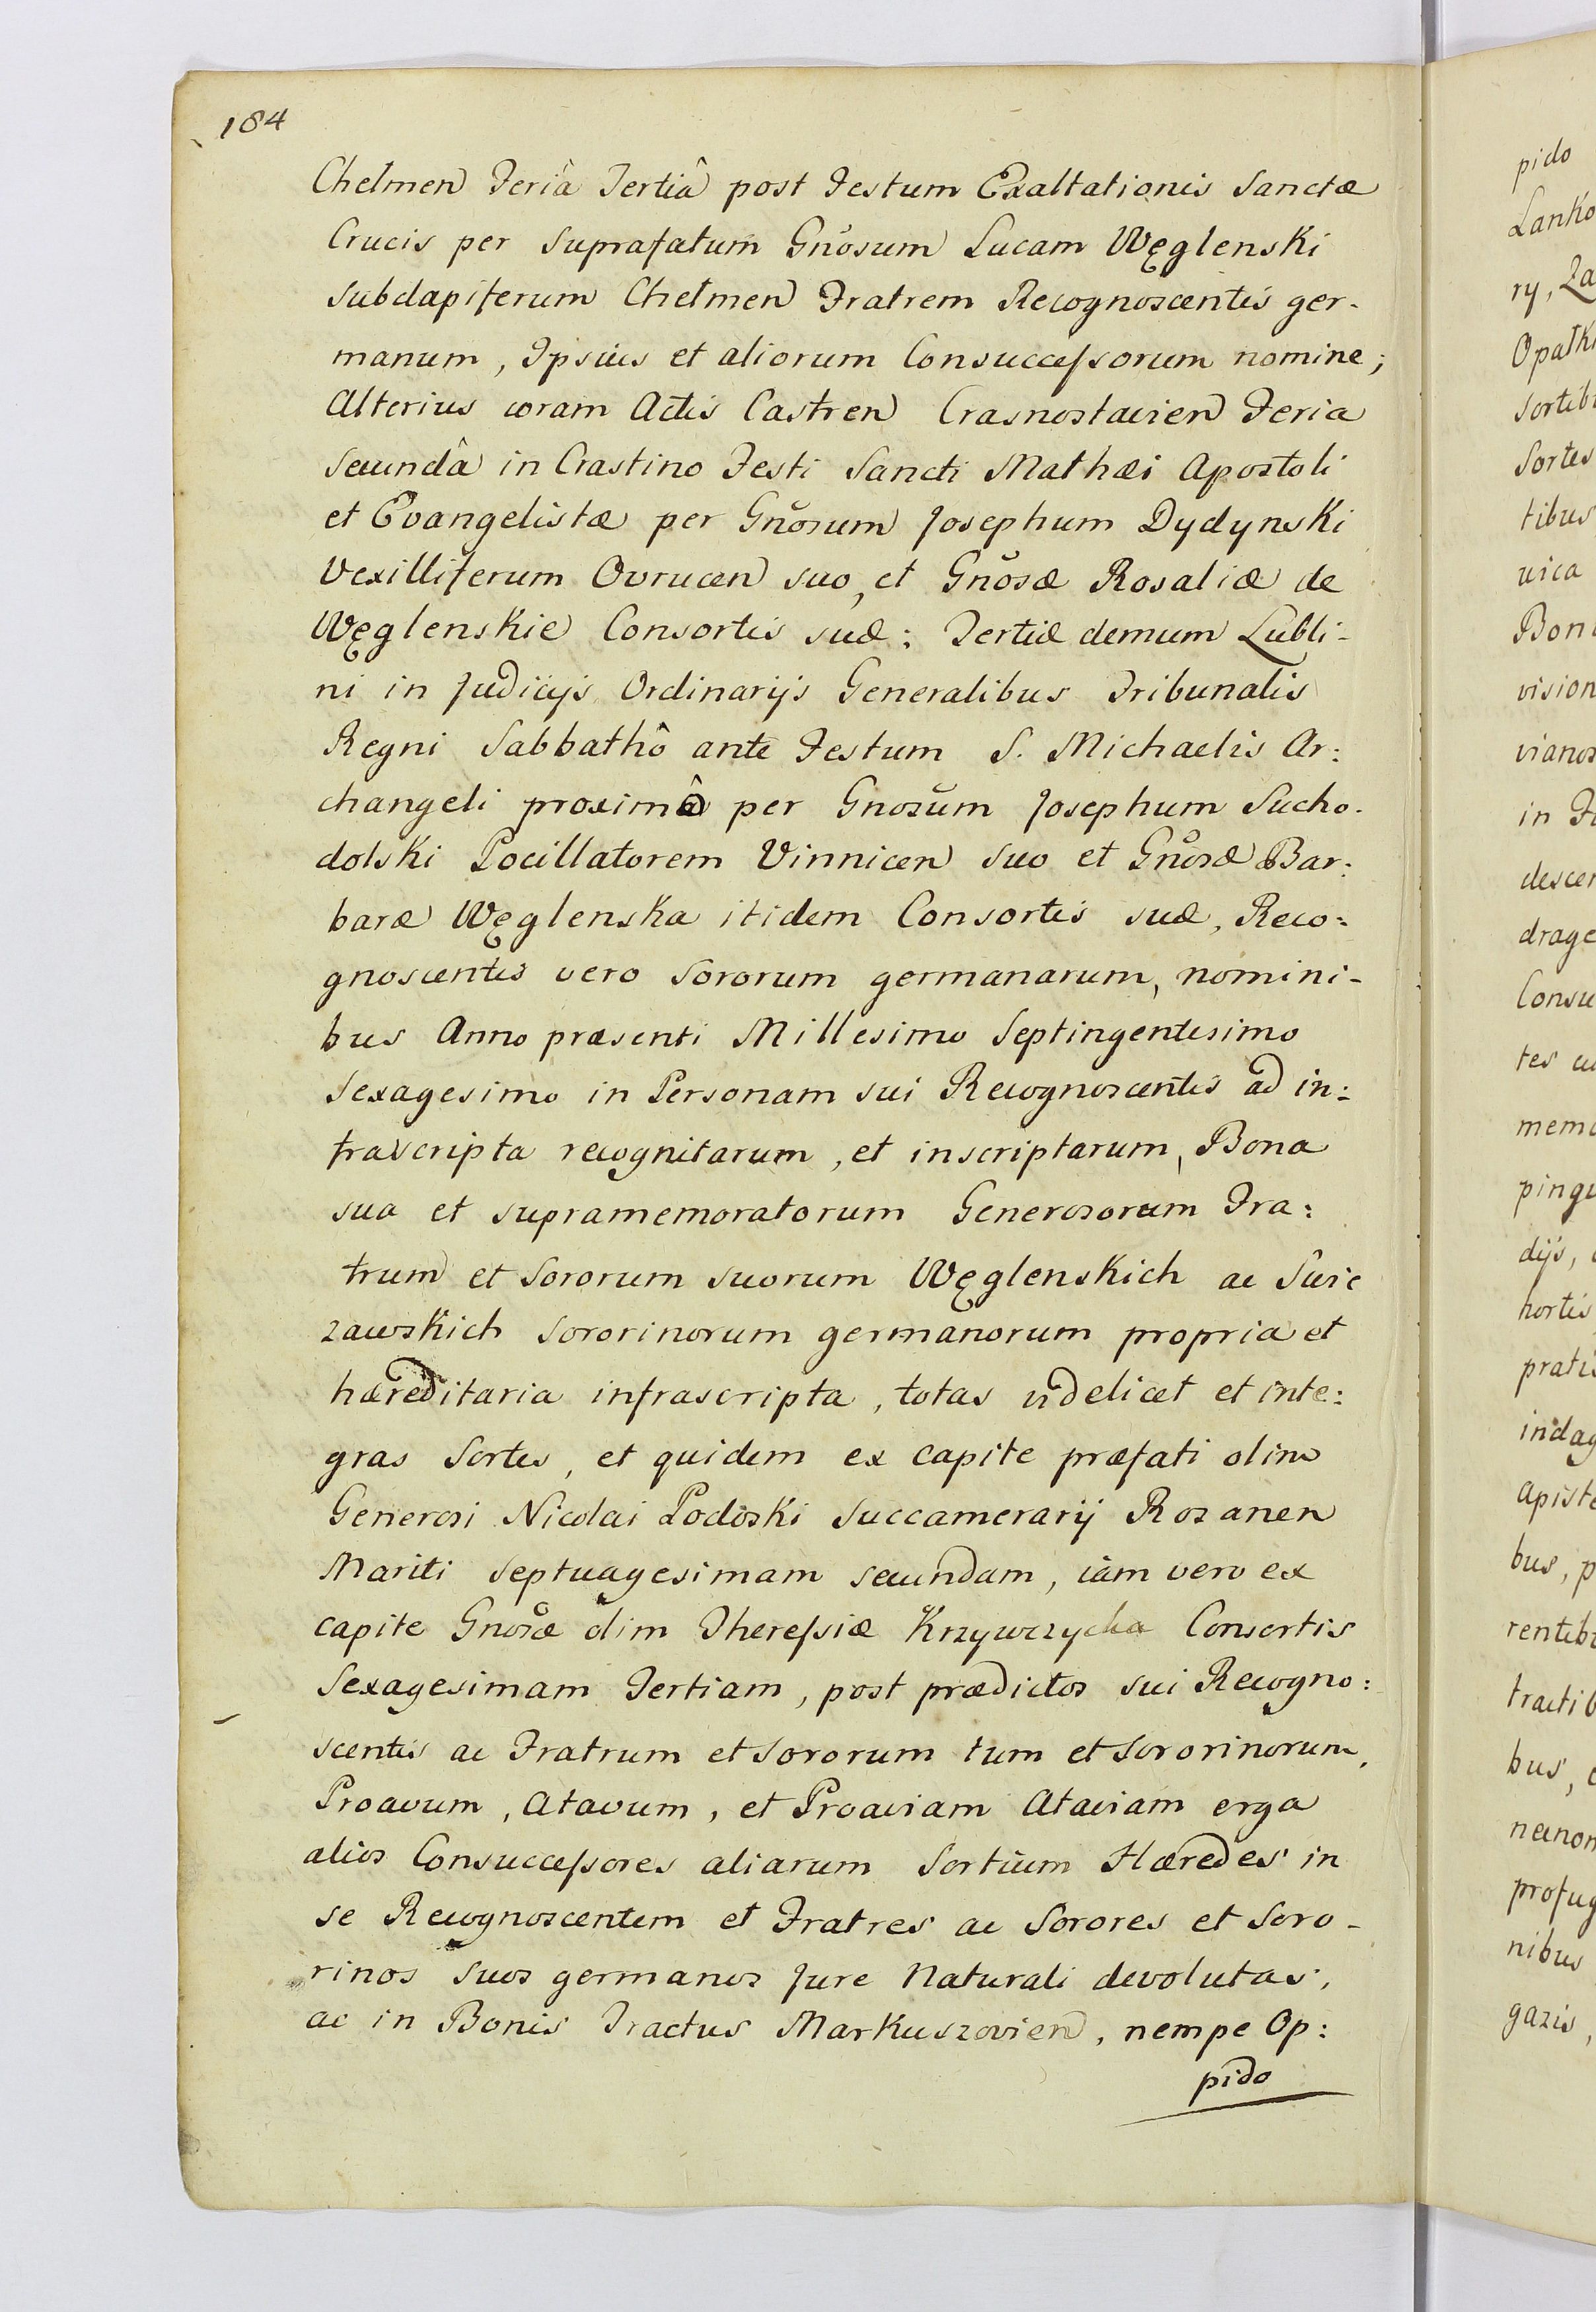 184
Chelmen Feriâ Tertiâ post Festum Exaltationis Sanctæ
Crucis per Suprafatum Gnōsum Lucam Węglenski
Subdapiferum Chelmen Fratrem Recognoscentis ger-
manum, Ipsius et aliorum Consuccessorum nomine;
Alterius coram Actis Castren Crasnostavien Feria
Secundâ in Crastino Festi Sancti Mathæi Apostoli
et Evangelistæ per Gnōsum Josephum Dydynski
Vexilliferum Ovrucen suo, et Gnōsæ Rosaliæ de
Węglenskie Consortis suæ; Tertiæ demum Lubli-
ni in Judicijs Ordinarijs Generalibus Tribunalis
Regni Sabbathô ante Festum S. Michaelis Ar:
changeli proximô per Gnosūm Josephum Sucho-
dolski Pocillatorem Vinnicen suo et Gnōsæ Bar:
baræ Węglenska itidem Consortis suæ, Reco:
gnoscentis vero Sororum germanarum, nomini-
bus Anno præsenti Millesimo Septingentesimo
Sexagesimo in Personam sui Recognoscentis ad in:
frascripta recognitarum, et inscriptarum, Bona
sua et supramemoratorum Generosorum Fra:
trum et Sororum suorum Węglenskich ac Swie
zawskich Sororinorum germanorum propria et
hæreditaria infrascripta, totas videlicet et inte:
gras Sortes, et quidem ex capite præfati olim
Generosi Nicolai Podoski Succamerarij Rozanen
Mariti Septuagesimam secundam, iam vero ex
capite Gnōsæ olim Theressiæ Krzywczycka Consortis
Sexagesimam Tertiam, post prædictos sui Recogno:
scentis ac Fratrum et Sororum tum et Sororinorum,
Proavum, Atavum, et Proaviam Ataviam erga
alios Consuccessores aliarum Sortium Hæredes in
se Recognoscentem et Fratres ac Sorores et Soro-
rinos suos germanos Jure Naturali devolutas,
ac in Bonis Tractus Markuszovien, nempe Op:
pido
pido
Lanko
ry, Za
Opatk
Sortib
Sortes
tibus
vica
Bon
vision
vianos
in F
descen
drage
Consu
tes
memo
pingu
dijs,
hortis
pratis
indag
apist
bus, p
rentib
tractib
bus,
necnon
profug
nibus
gazis,